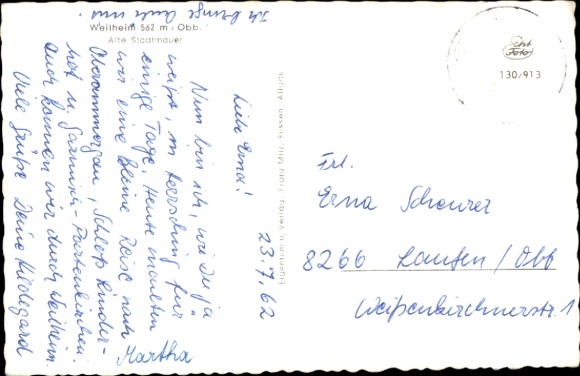 Ich bringe Euch was.
Weilheim 562 m / Obb.
Alte Stadtmauer
23.7.62
Liebe Erna!
Nun bin ich, wie Du ja
weißt, in Herrsching für
einige Tage. Heute machten
wir eine kleine Reise nach
Oberammergau, Schloß Linder-
hof u. Garmisch-Partenkirchen.
Auch kamen wir durch Weilheim.
Viele Grüße Deine Hildegard
Martha
Eigentum u. Verlag Franz Milz, Füssen, Allgäu
Echt
Foto
130/913
Frl.
Erna Scheurer
8266 Laufen / Obb
Weißenkirchnerstr. 1